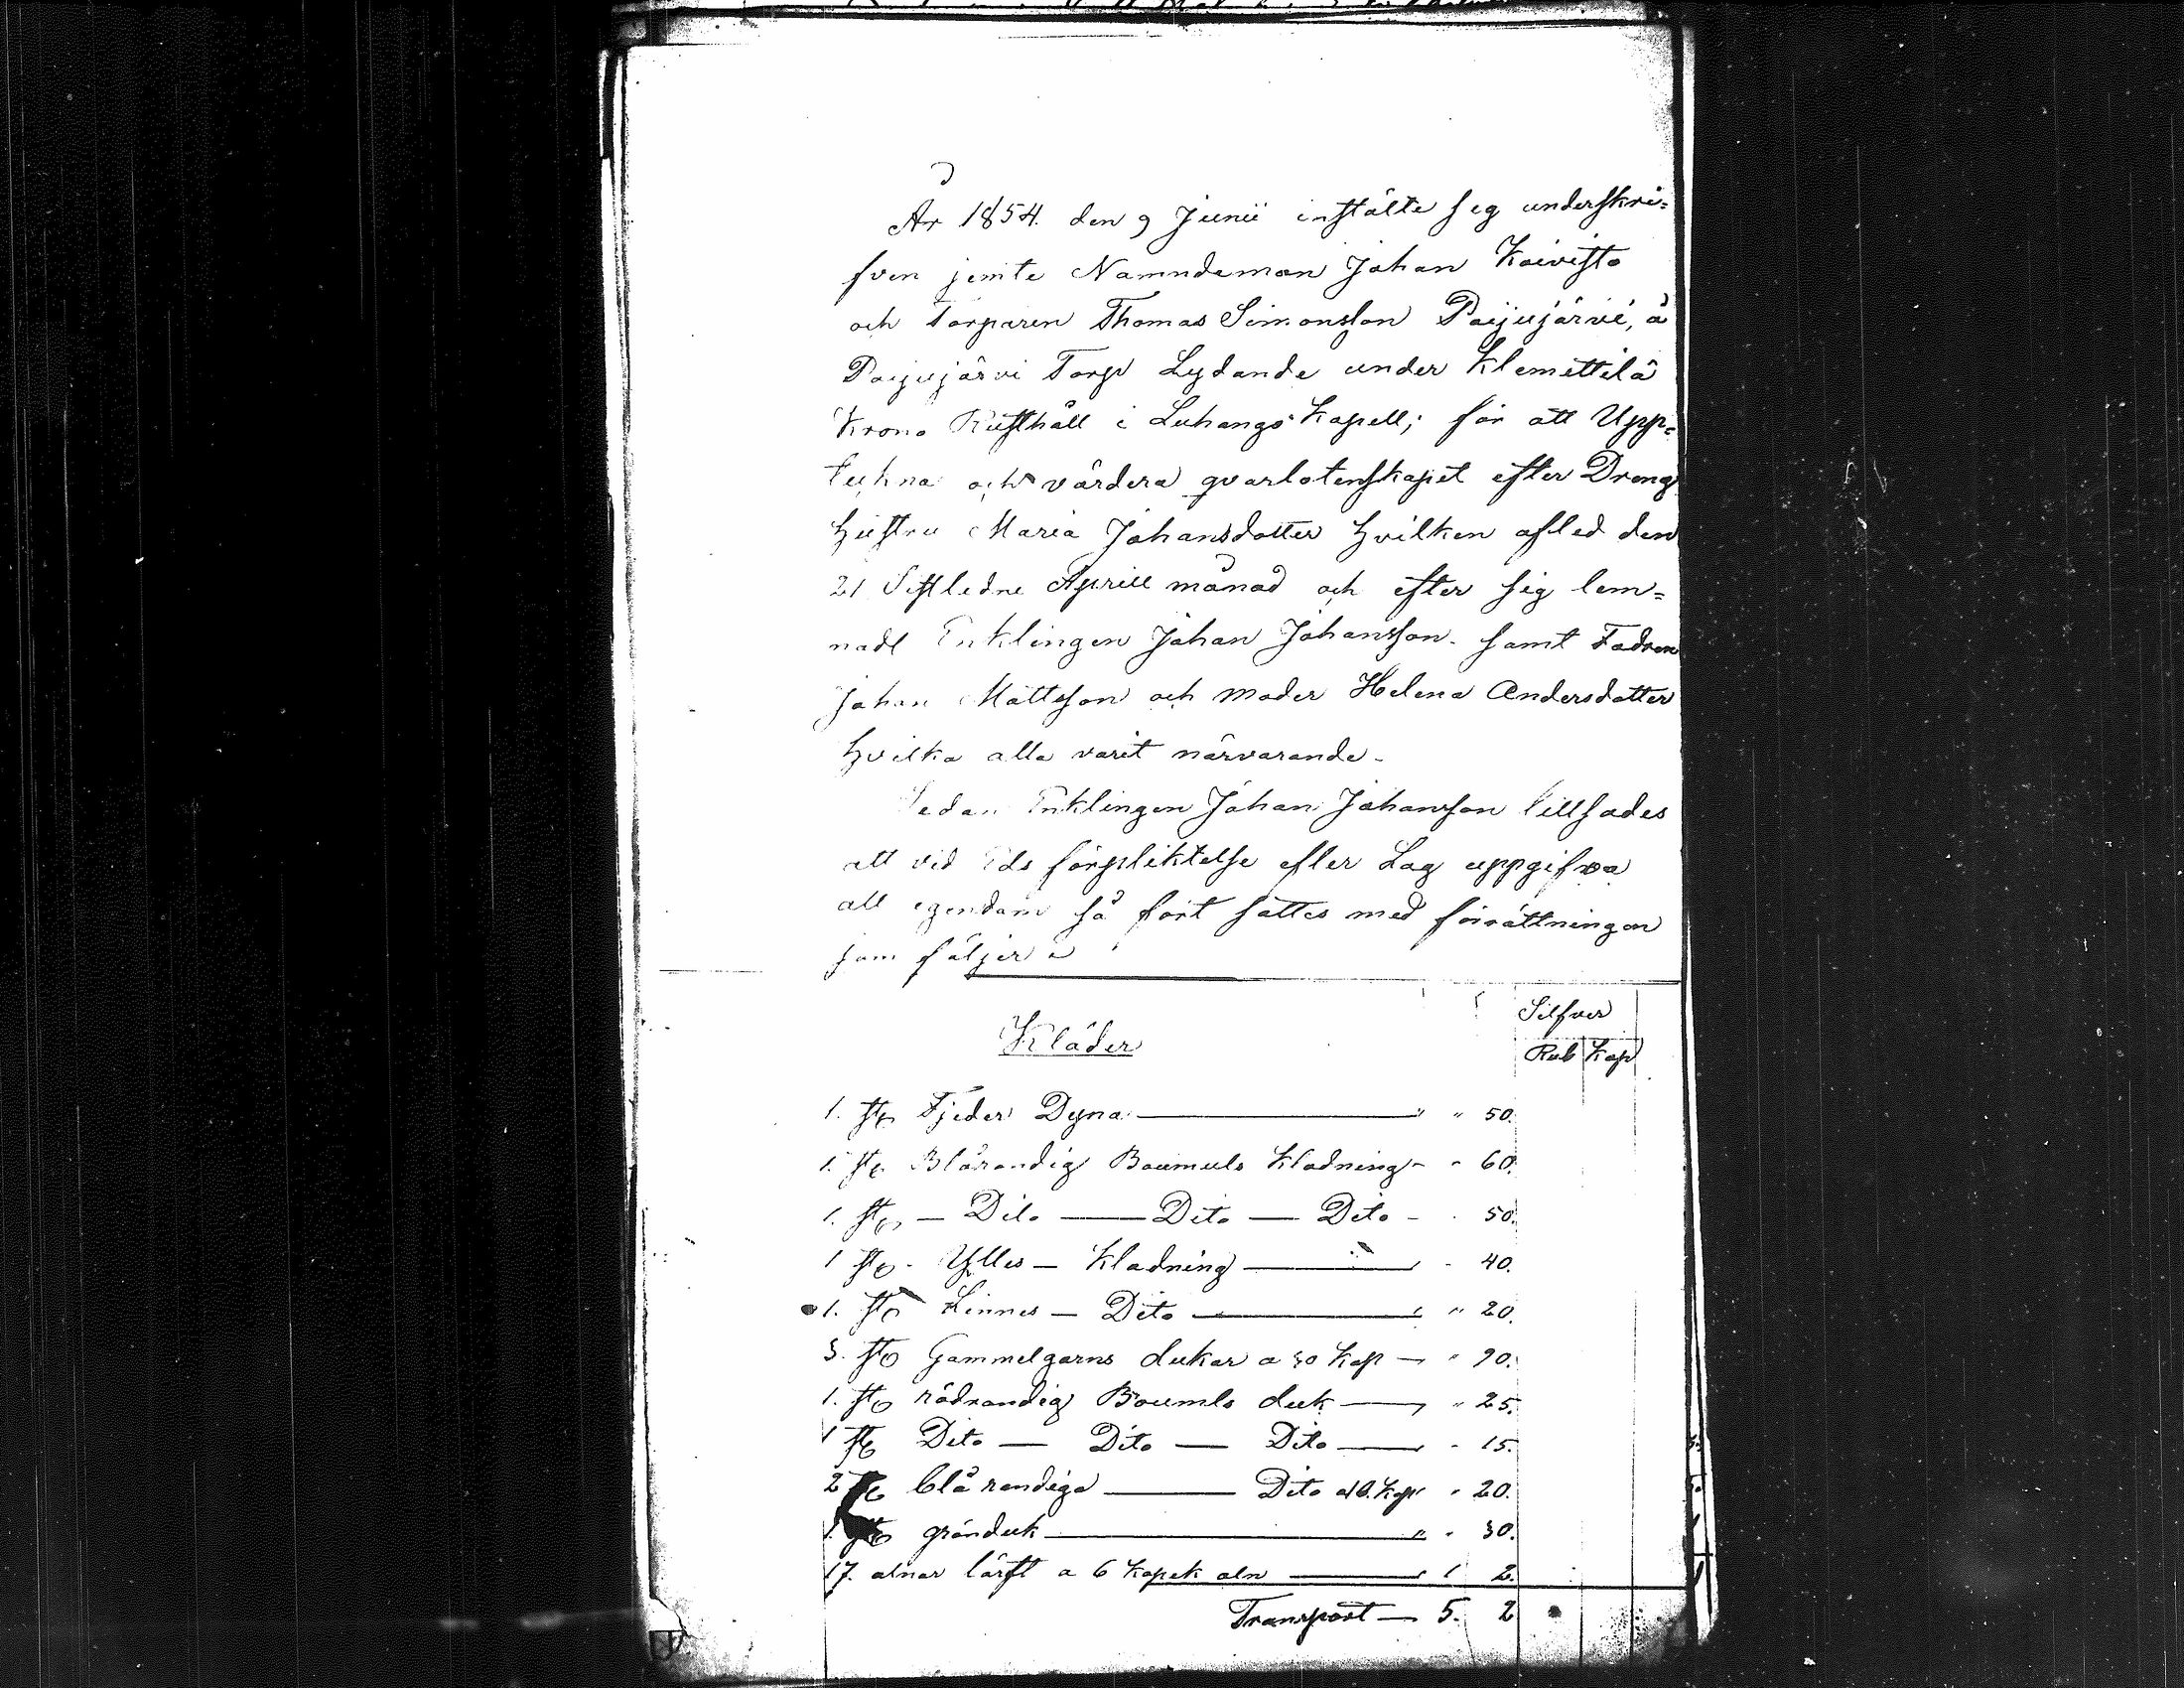 År 1854. den 9 Junii instälte sig underskri=
fven jemte Namndeman Johan Koivisto
och Torparen Thomas Simonsson Pajujärvi, å
Pajujärvi Torp Lydande under Klemettilä
Krono Rusthåll i Luhango Kapell; för att Upp=
tekna och värdera qvarlotenskapet efter Dreng
hustru Maria Johansdotter hvilken afled den
21 Sistledne Aprill månad och efter sig lem=
nadt Enklingen Johan Johansson. samt Fadren
Johan Mattsson och moder Helena Andersdotter
hvilka alla varit närvarande.
Sedan Enklingen Johan Johansson tillsades
att vid Eds förpliktelse efter Lag uppgifva
all egendom så fort sattes med förrättningen
som följer
Silfver
Kläder
Rub Kop
1. st Fjeder Dyna — " " 50.
1. st Blårandig Boumuls Kladning - - 60.
1. st — Dito — Dito — Dito - . 50.
1 st - Ylles — Kladning — - 40.
1. st Linnes — Dito — " 20.
3. st Gammelgarns dukar a 30 Kop — " 90.
1. st rödrandig Boumls duk — " 25.
1 st Dito — Dito — Dito — - 15.
2 st blårandiga — Dito a 10. Kop " 20.
1. st grönduk — " - 30.
17. alnar lärft a 6 Kopek aln — 1 2.
Transport — 5. 2